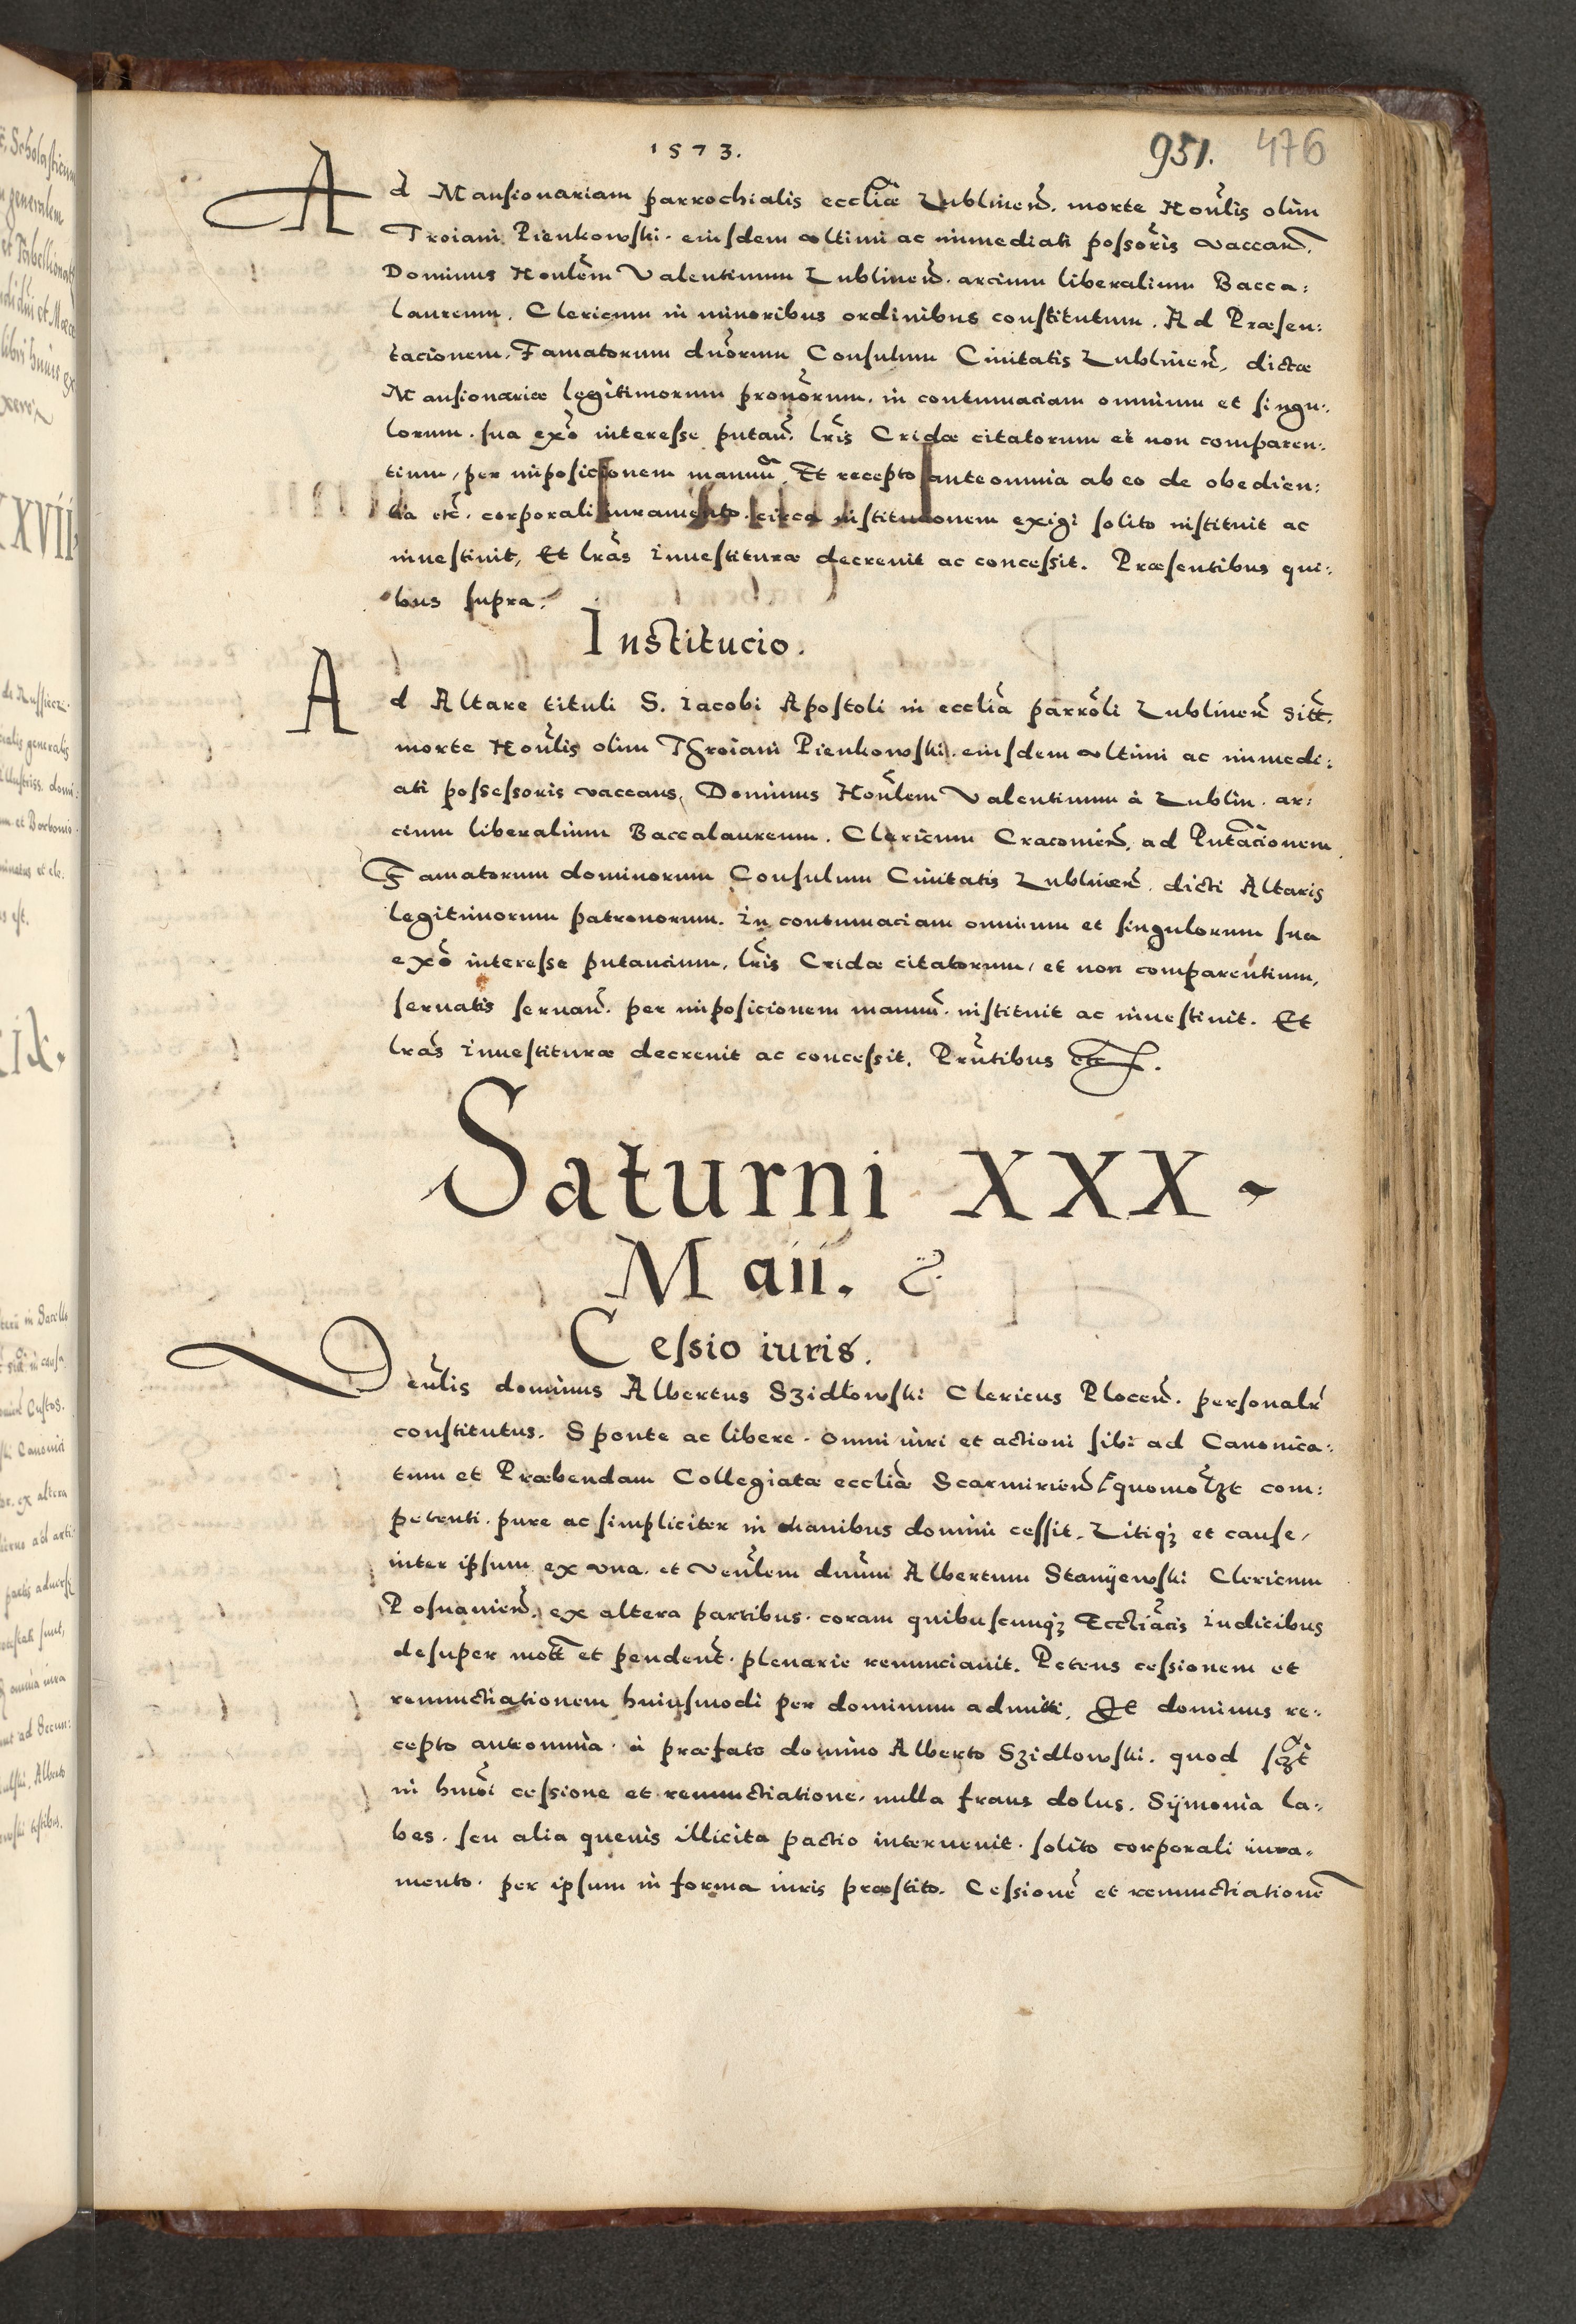 1573.
951. 476
Ad Mansionariam parrochialis eccliæ Lublinen. morte Honlis olim
Troiani Pienkowski. eiusdem vltimi ac immediati possoris vaccan.
Dominus Honlem Valentinum Lublinen. arcium liberalium Bacca:
laureum. Clericum in minoribus ordinibus constitutum. Ad Præsen:
tacionem. Famatorum dnorum Consulum Ciuitatis Lublinen. dictæ
Mansionariæ legitimorum pronorum. in contumaciam omnium et singu:
lorum. sua exõ interesse putan. lris Cridæ citatorum et non comparen:
tium, per imposicionem manuũ. Et recepto anteomnia ab eo de obedien:
tia etc. corporali iuramento. circa institucionem exigi solito instituit ac
inuestiuit, Et lras inuestituræ decreuit ac concessit. Præsentibus qui:
bus supra.
Institucio.
Ad Altare tituli S. Iacobi Apostoli in ecclia parroli Lublinen sitt.
morte Honlis olim Throiani Pienkowski. eiusdem vltimi ac immedi:
ati possessoris vaccans, Dominus Honlem Valentinum à Lublin. ar:
cium liberalium Baccalaureum. Clericum Cracouien. ad Pntacionem
Famatorum dominorum Consulum Ciuitatis Lublinen. dicti Altaris
legitimorum patronorum. In contumaciam omnium et singulorum sua
exõ interesse putancium, lris Cridæ citatorum, et non comparentium,
seruatis seruan. per imposicionem manuũ. instituit ac inuestiuit. Et
lras inuestituræ decreuit ac concessit. PRntibus etc.
Saturni XXX
Maii.
Cessio iuris.
Venlis dominus Albertus Szidlowski Clericus Plocen. personalr
constitutus. Sponte ac libere. omni iuri et actioni sibi ad Canonica:
tum et Præbendam Collegiatæ eccliæ Scarmirien quomolzt com:
petenti. pure ac simpliciter in manibus domini cessit. Litiqz et cause,
inter ipsum ex vna. et Venlem dnum Albertum Stanÿewski Clericum
Posnanien. ex altera partibus. coram quibuscunqz Eccliacis iudicibus
desuper mott et penden. plenarie renunciauit. Petens cessionem et
renunctiationem huiusmodi per dominum admitti. Et dominus re:
cepto anteomnia. à præfato domino Alberto Szidlowski. quod szt
in hmoi cessione et renunctiatione. nulla fraus dolus. Sÿmonia la:
bes. seu alia queuis illicita pactio interuenit. solito corporali iura:
mento. per ipsum in forma iuris præstito. Cessionẽ et renunctiationẽ